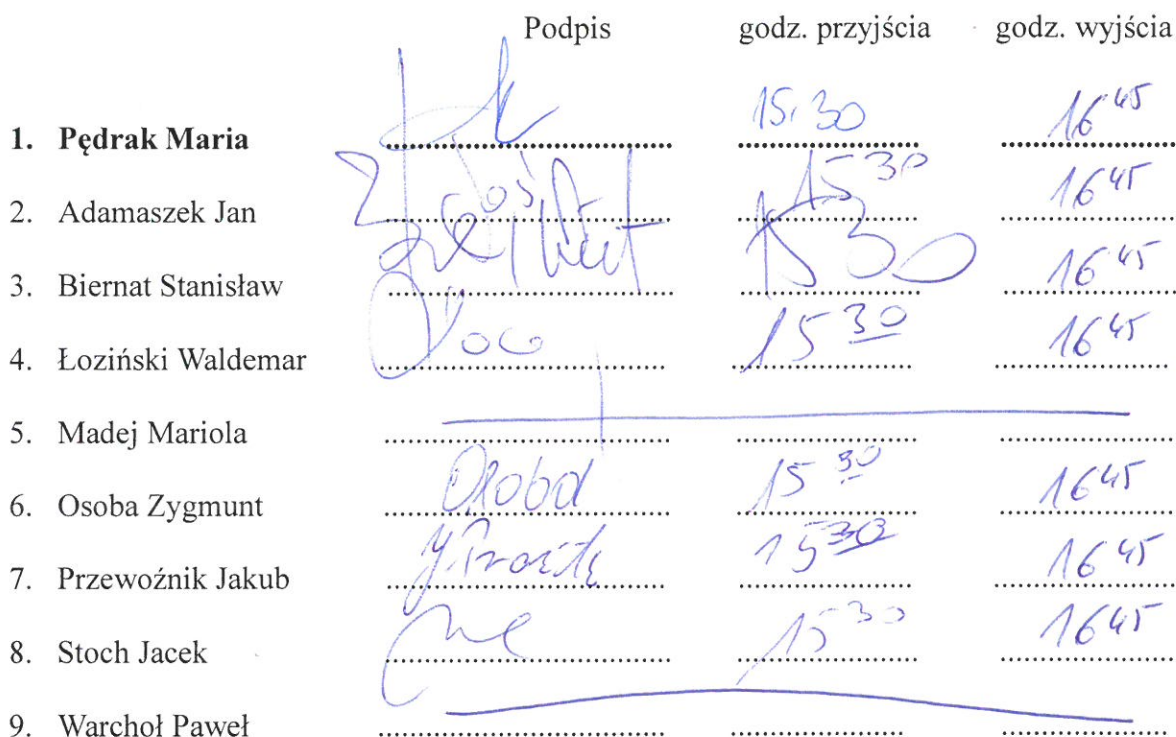 Podpis godz. przyjścia godz. wyjścia
1. Pędrak Maria 15.30 16 45
2. Adamaszek Jan 15 30 16 45
3. Biernat Stanisław 15 30 16 45
4. Łoziński Waldemar 15 30 16 45
5. Madej Mariola
6. Osoba Zygmunt Osoba 15 30 16 45
7. Przewoźnik Jakub 15 30 16 45
8. Stoch Jacek 15 30 16 45
9. Warchoł Paweł